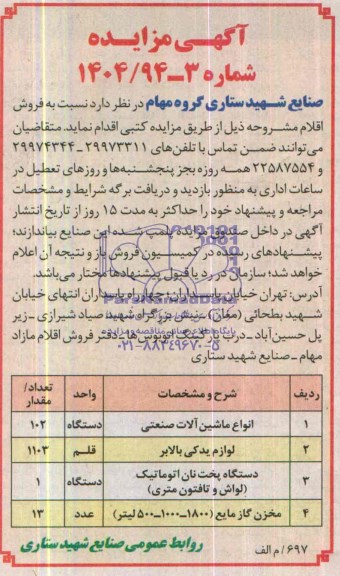 آگهـی مزایـده
شماره ۳ـ۱۴۰۴/۹۴
صنایع شـهید ستاری گروه مهام در نظر دارد نسبت به فروش
اقلام مشـروحه ذیل از طریق مزایده کتبی اقدام نماید. متقاضیان
می‌توانند ضمـن تماس با تلفن‌های ۲۹۹۷۳۳۱۱ـ ۲۹۹۷۴۳۴۴
و ۲۲۵۸۷۵۵۴ همـه روزه بجز پنجشـنبه‌ها و روزهای تعطیل در
ساعات اداری به منظور بازدید و دریافت برگه شرایط و مشخصات
مراجعه و پیشنهاد خود را حداکثر به مدت ۱۵ روز از تاریخ انتشار
آگهی در داخل صندوق مزایده پلمپ شده این صنایع بیاندازند؛
پیشـنهادهای رسیده در کمیسـیون فروش باز و نتیجه آن اعلام
خواهد شد؛ سازمان در رد یا قبول پیشنهادها مختار می‌باشد.
آدرس: تهران خیابان پاسـداران؛ چهارراه پاسـداران انتهای خیابان
شـهید بطحائی (مغان) ـ نبش بزرگراه شهید صیاد شیرازی ـ زیر
پل حسین‌آباد ـ درب پارکینگ اتوبوس‌ها ـ دفتر فروش اقلام مازاد
مهام ـ صنایع شهید ستاری
پایگاه اطلاع رسانی مناقصه و مزایده
۰۲۱-۸۸۳۴۹۶۷۰-۵
ردیف شرح و مشخصات واحد تعداد/مقدار
۱ انواع ماشین آلات صنعتی دستگاه ۱۰۲
۲ لوازم یدکی بالابر قلـم ۱۱۰۳
۳ دستگاه پخت نان اتوماتیک (لواش و تافتون متری) دستگاه ۱
۴ مخزن گاز مایع (۱۸۰۰ـ۱۰۰۰ـ۵۰۰ لیتر) عدد ۱۳
روابط عمومی صنایع شهید ستاری
۶۹۷/ م الف